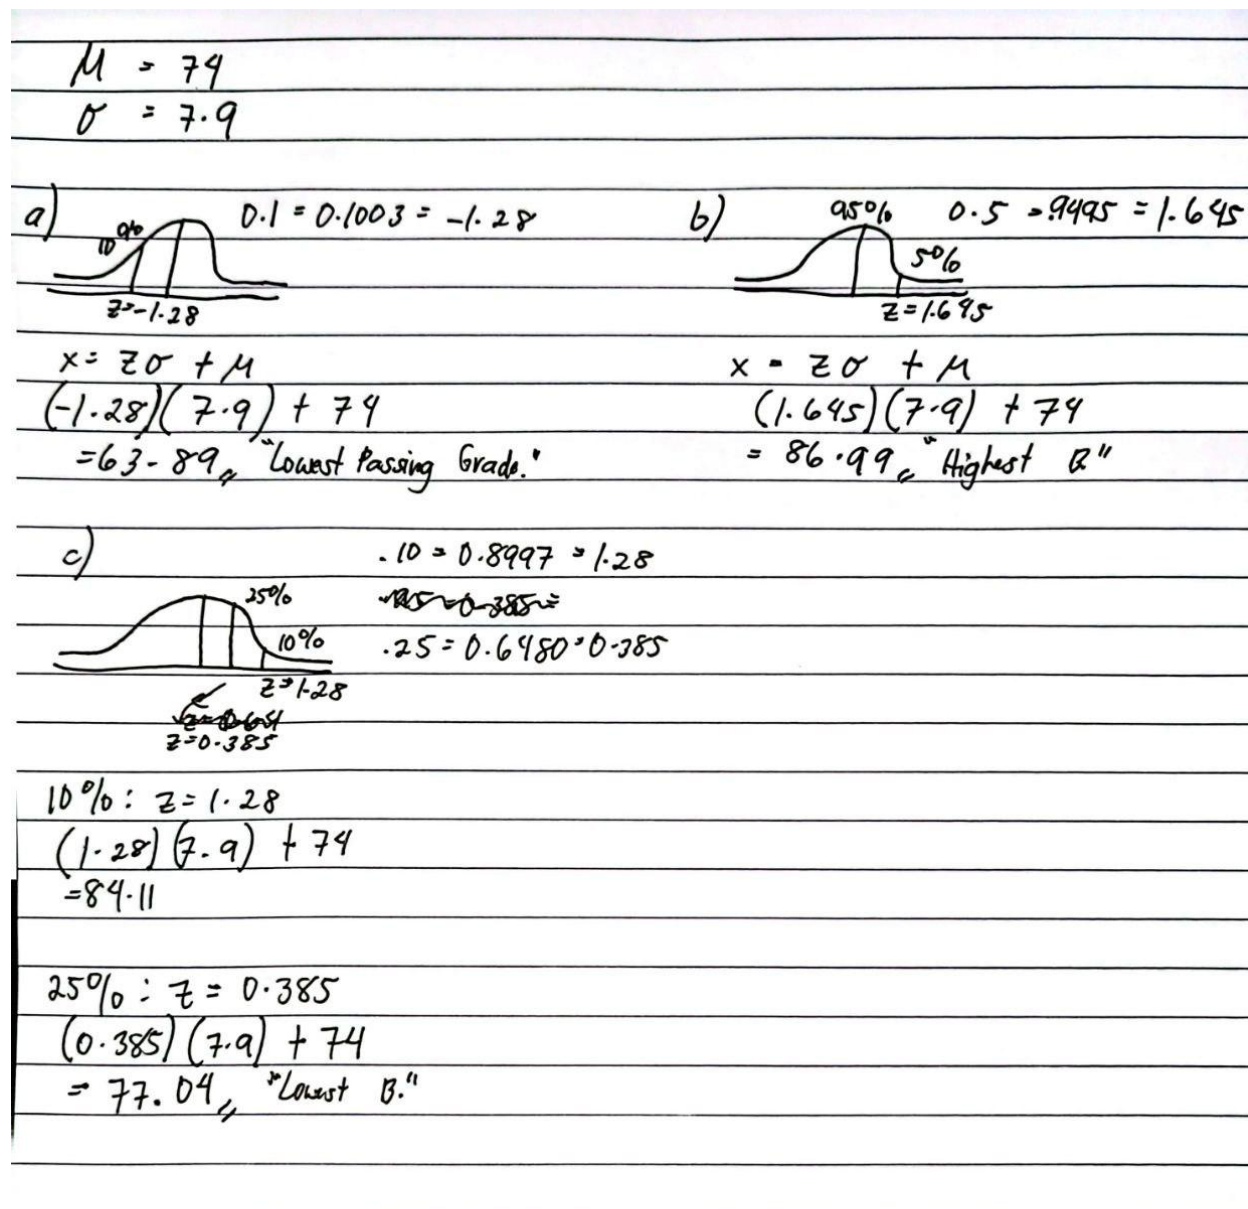 μ = 74
σ = 7.9
a)
10%
0.1 = 0.1003 = -1.28
z=-1.28
x = zσ + μ
(-1.28)(7.9) + 74
=63-89,, "Lowest Passing Grade."
b)
95%
5%
0.5 = .9495 = 1.645
z=1.645
x = zσ + μ
(1.645)(7.9) + 74
= 86.99,, "Highest B"
c)
.10 = 0.8997 = 1.28
25%
10%
.25 = 0.6480 = 0.385
z=1.28
z=0.385
10%: z=1.28
(1.28)(7.9) + 74
=84.11
25%: z = 0.385
(0.385)(7.9) + 74
= 77.04,, "Lowest B."